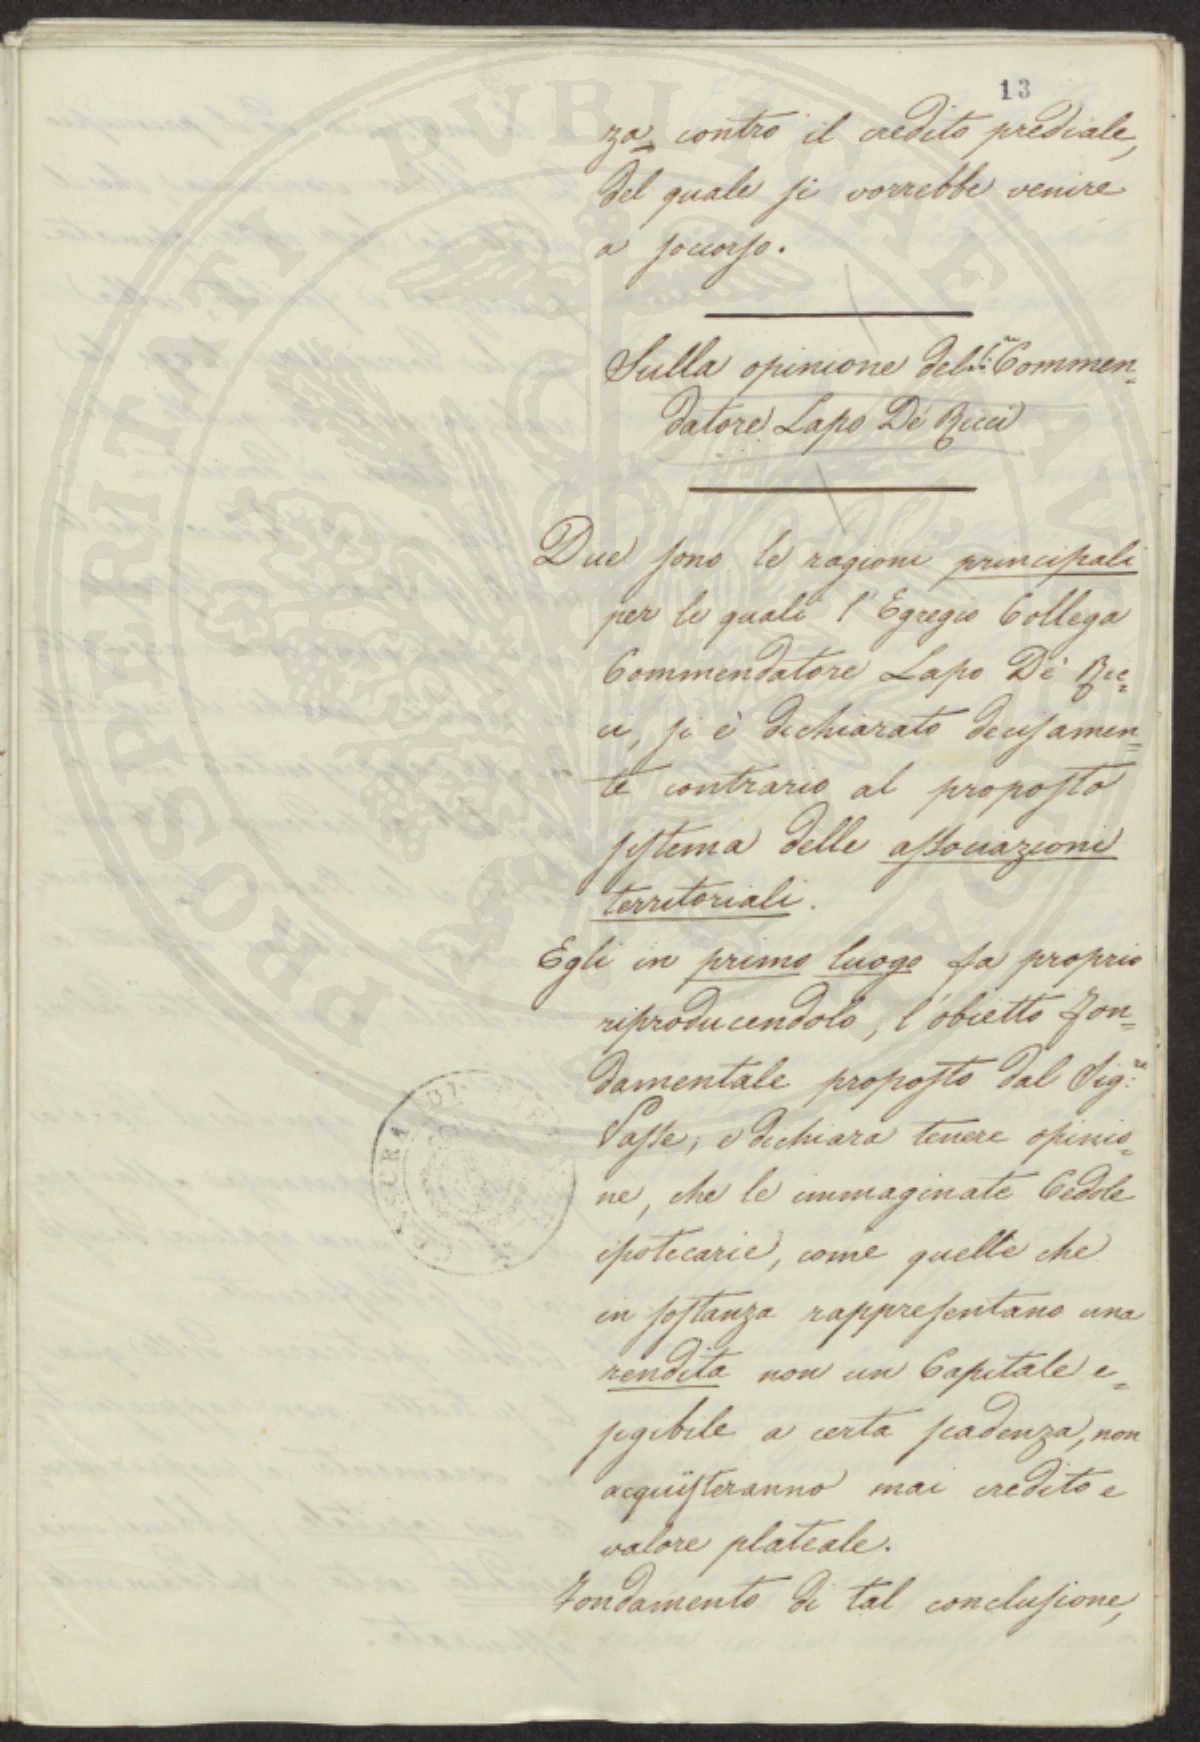 13
za, contro il credito prediale,
del quale si vorrebbe venire
a soccorso.
Sulla opinione del Sig.r Commen=
datore Lapo De' Ricci
Due sono le ragioni principali
per le quali l'Egregio Collega
Commendatore Lapo De' Ric=
ci, si è dichiarato decisamen=
te contrario al proposto
sistema delle associazioni
territoriali.
Egli in primo luogo fa proprio
riproducendolo, l'obietto fon=
damentale proposto dal Sig:re
Passe; e dichiara tenere opinio=
ne, che le immaginate Cedole
ipotecarie, come quelle che
in sostanza rappresentano una
rendita non un Capitale e=
sigibile a certa scadenza, non
acquisteranno mai credito e
valore plateale.
Fondamento di tal conclusione,
PROSPERITATI PVBLICAE AVGENDAE